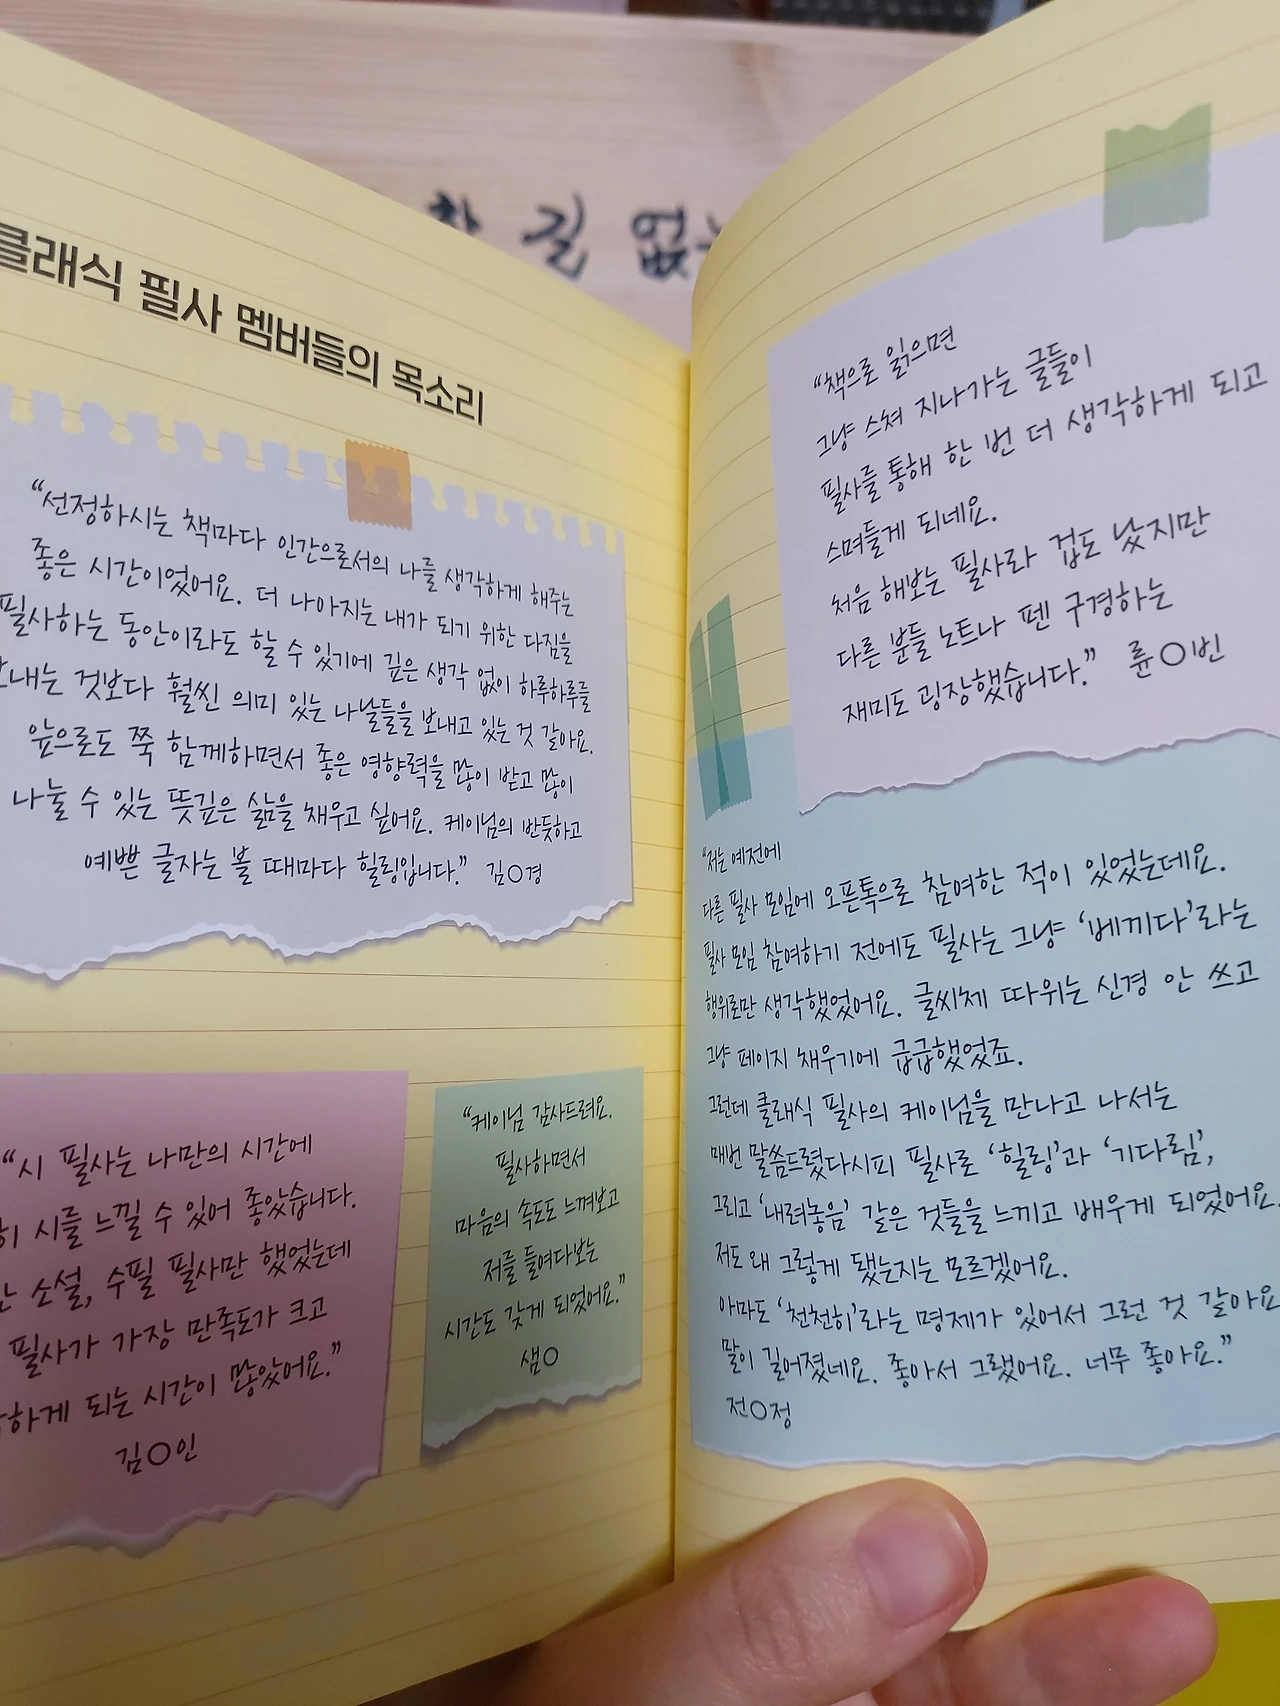 클래식 필사 멤버들의 목소리
“선정하시는 책마다 인간으로서의 나를 생각하게 해주는
좋은 시간이었어요. 더 나아지는 내가 되기 위한 다짐을
필사하는 동안이라도 할 수 있기에 깊은 생각 없이 하루하루를
보내는 것보다 훨씬 의미 있는 나날들을 보내고 있는 것 같아요.
앞으로도 쭉 함께하면서 좋은 영향력을 많이 받고 많이
나눌 수 있는 뜻깊은 삶을 채우고 싶어요. 케이님의 반듯하고
예쁜 글자는 볼 때마다 힐링입니다.” 김○경
“시 필사는 나만의 시간에
시를 느낄 수 있어 좋았습니다.
소설, 수필 필사만 했었는데
필사가 가장 만족도가 크고
되는 시간이 많았어요.”
김○인
“케이님 감사드려요.
필사하면서
마음의 속도도 느껴보고
저를 들여다보는
시간도 갖게 되었어요.”
샘○
길 없
“책으로 읽으면
그냥 스쳐 지나가는 글들이
필사를 통해 한 번 더 생각하게 되고
스며들게 되네요.
처음 해보는 필사라 겁도 났지만
다른 분들 노트나 펜 구경하는
재미도 굉장했습니다.” 륜○빈
“저는 예전에
다른 필사 모임에 오픈톡으로 참여한 적이 있었는데요.
필사 모임 참여하기 전에도 필사는 그냥 ‘베끼다’라는
행위로만 생각했었어요. 글씨체 따위는 신경 안 쓰고
그냥 페이지 채우기에 급급했었죠.
그런데 클래식 필사의 케이님을 만나고 나서는
매번 말씀드렸다시피 필사로 ‘힐링’과 ‘기다림’,
그리고 ‘내려놓음’ 같은 것들을 느끼고 배우게 되었어요.
저도 왜 그렇게 됐는지는 모르겠어요.
아마도 ‘천천히’라는 명제가 있어서 그런 것 같아요
말이 길어졌네요. 좋아서 그랬어요. 너무 좋아요.”
전○정